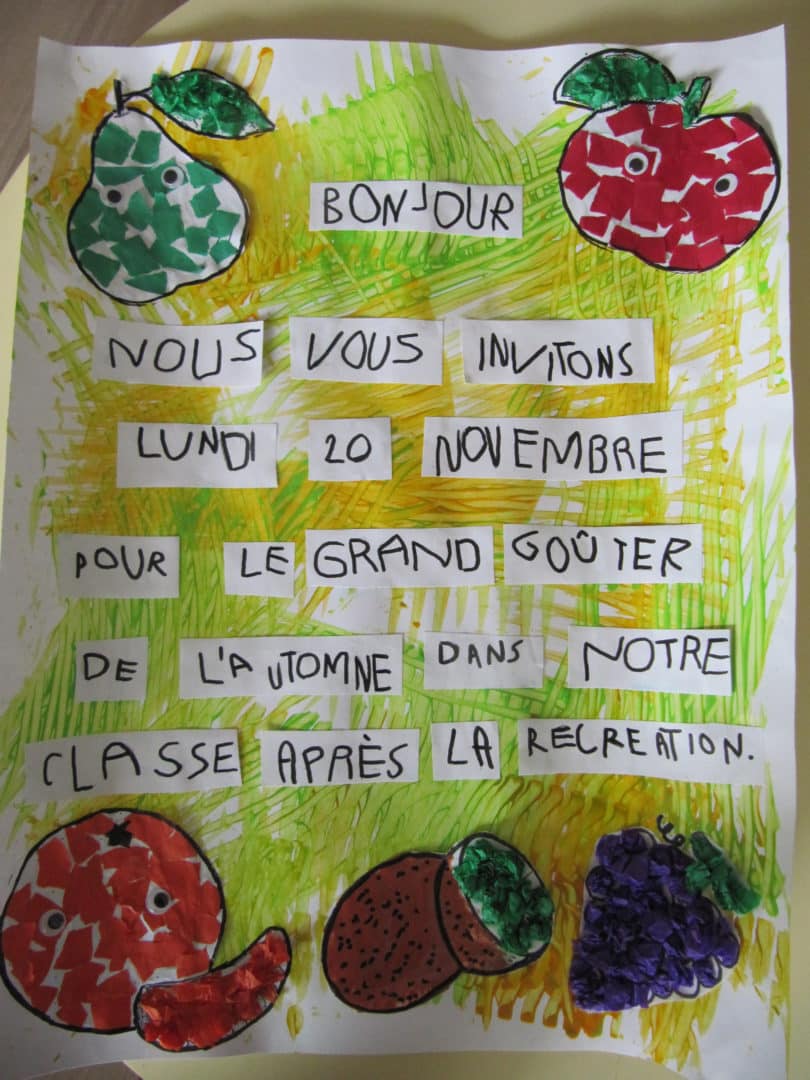 BONJOUR
NOUS VOUS INVITONS
LUNDI 20 NOVEMBRE
POUR LE GRAND GOÛTER
DE L'AUTOMNE DANS NOTRE
CLASSE APRÈS LA RÉCRÉATION.